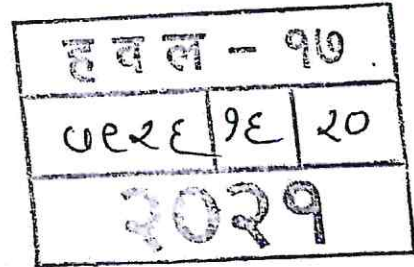 हवल - १७
७९२६ १६ २०
२०२१